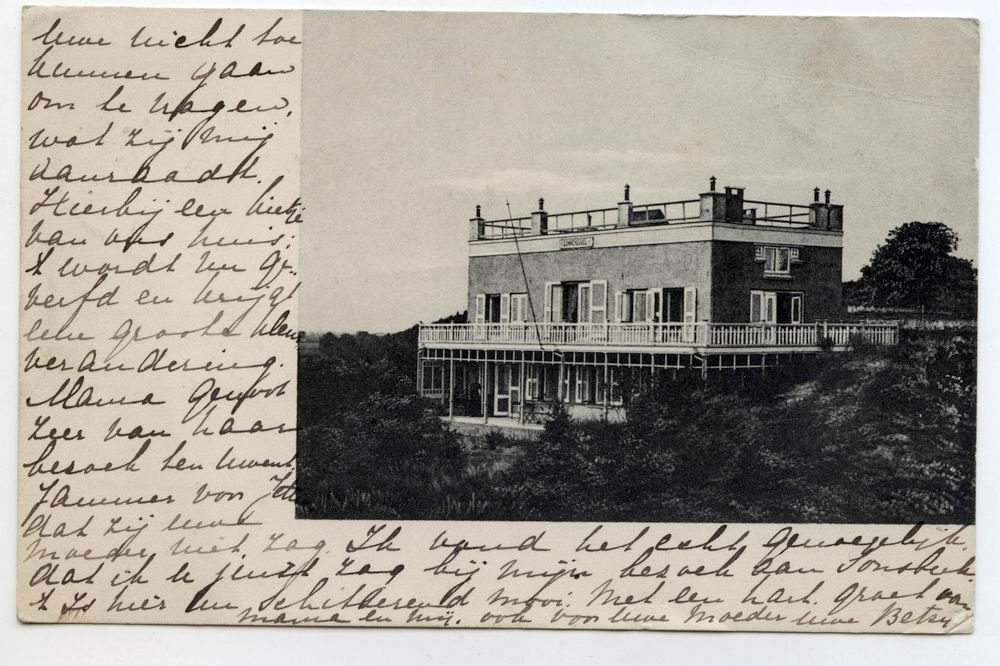 Uwe nicht toe
kunnen gaan
om te vragen,
wat zij mij
aanraadt.
Hierbij een kiekje
van ons huis;
't wordt nu ge-
verfd en krijgt
eene groote kleur
verandering.
Mama genoot
zeer van haar
bezoek ten Uwent,
Jammer voor
dat zij uwe
Moeder niet zag. Ik vond het echt genoegelijk,
dat ik u juist zag bij mijn bezoek aan Sonsbeek.
't Is hier nu schitterend mooi. Met een hart. groet van
mama en mij, ook voor Uwe Moeder uwe Betsy